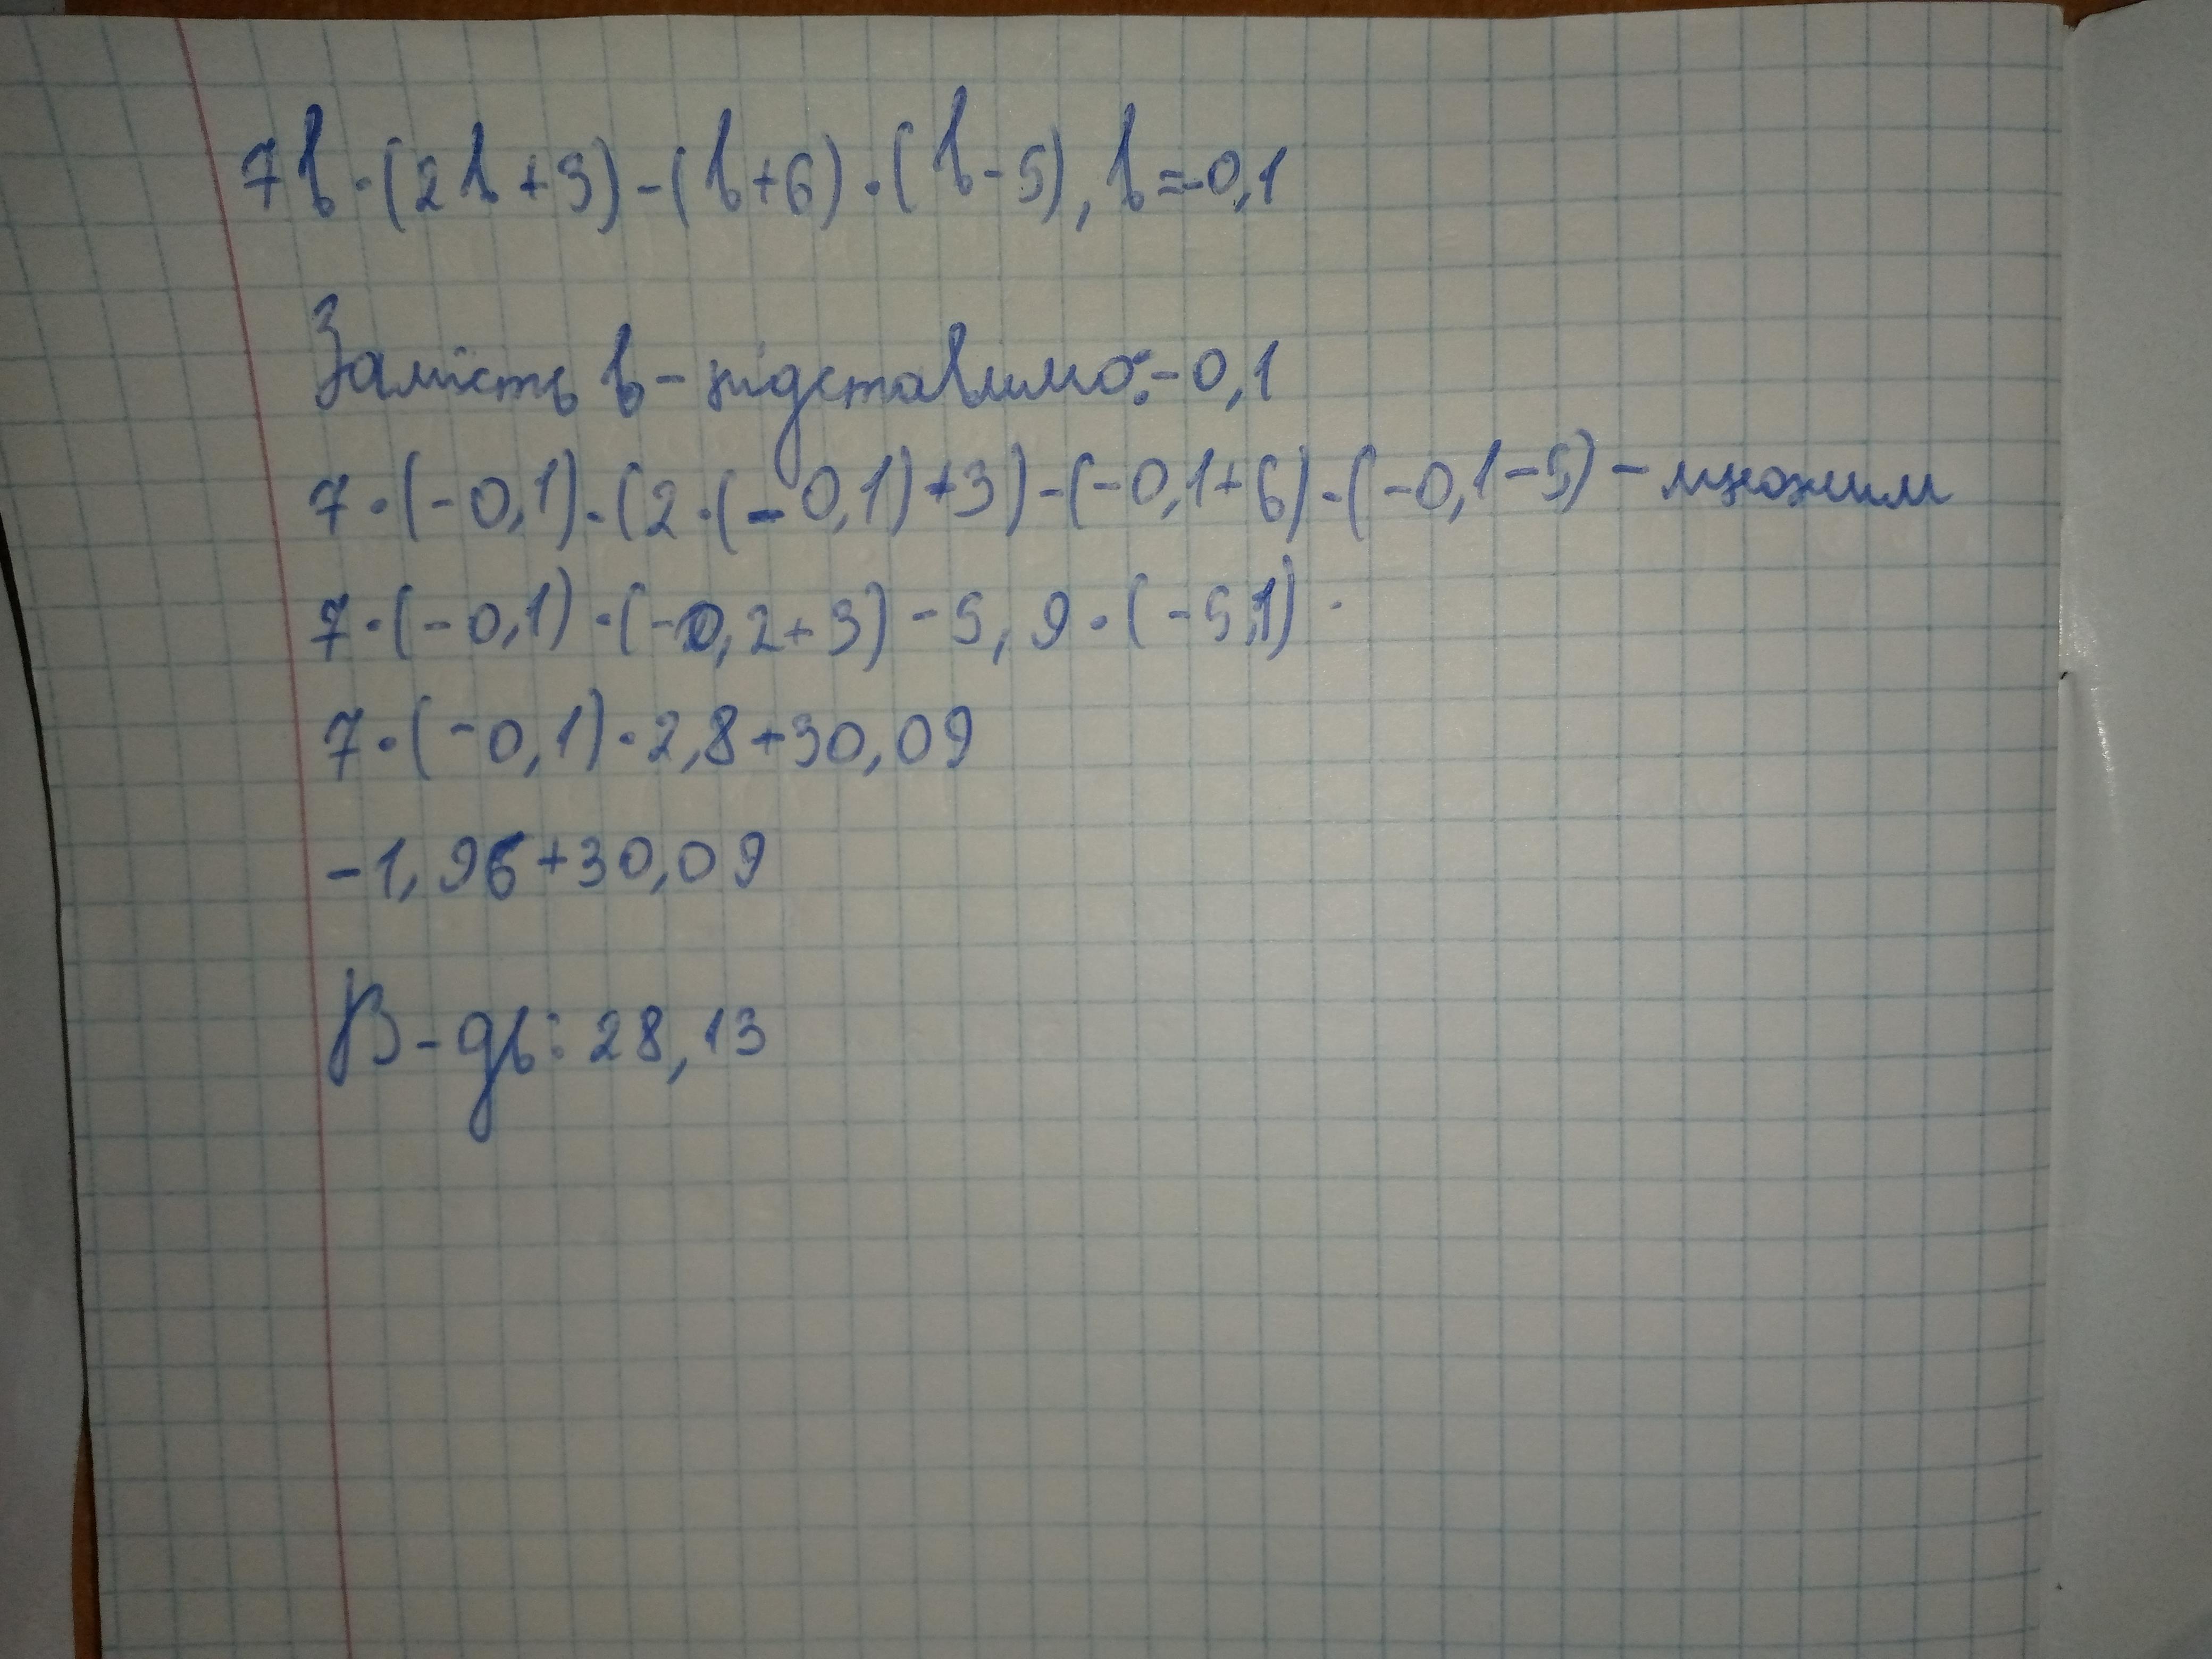 7b·(2b+3)-(b+6)·(b-5), b=-0,1
Замість b - підставимо: -0,1
7·(-0,1)·(2·(-0,1)+3)-(-0,1+6)·(-0,1-5) - множим
7·(-0,1)·(-0,2+3)-5,9·(-5,1)
7·(-0,1)·2,8+30,09
-1,96+30,09
В-дь: 28,13